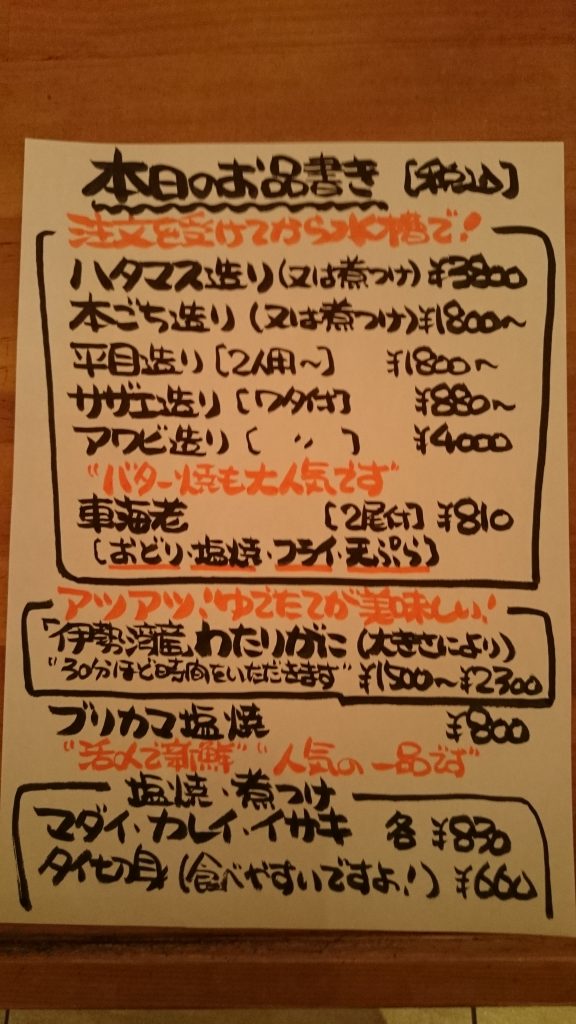 本日のお品書き [税込]
注文を受けてから水槽で!
ハタマス造り(又は煮つけ) ¥3800
本ごち造り(又は煮つけ)¥1800〜
平目造り[2人用〜] ¥1800〜
サザエ造り[ワタ付] ¥880〜
アワビ造り[ 〃 ] ¥4000
"バター焼も大人気です"
車海老 [2尾付] ¥810
[おどり・塩焼・フライ・天ぷら]
アツアツ!ゆでたてが美味しい!
「伊勢湾産」わたりがに(大きさにより)
"30分ほど時間をいただきます" ¥1500〜¥2300
ブリカマ塩焼 ¥800
"活〆で新鮮" "人気の一品です"
塩焼・煮つけ
マダイ・カレイ・イサキ 各 ¥830
タイ切身(食べやすいですよ!) ¥660